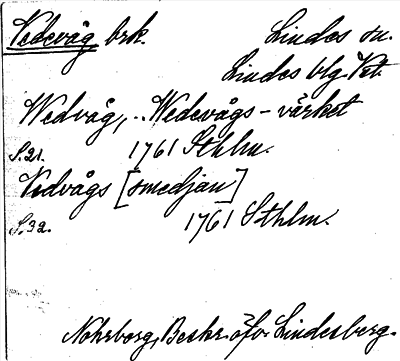 Vedevåg brk. Lindes sn.
Lindes blg. Vst.
Wedvåg, Wedevågs-värket
S.21. 1761 Sthlm.
Vedvågs [smedjan]
S.32. 1761 Sthlm.
Nohrborg, Beskr. öfv. Lindesberg.